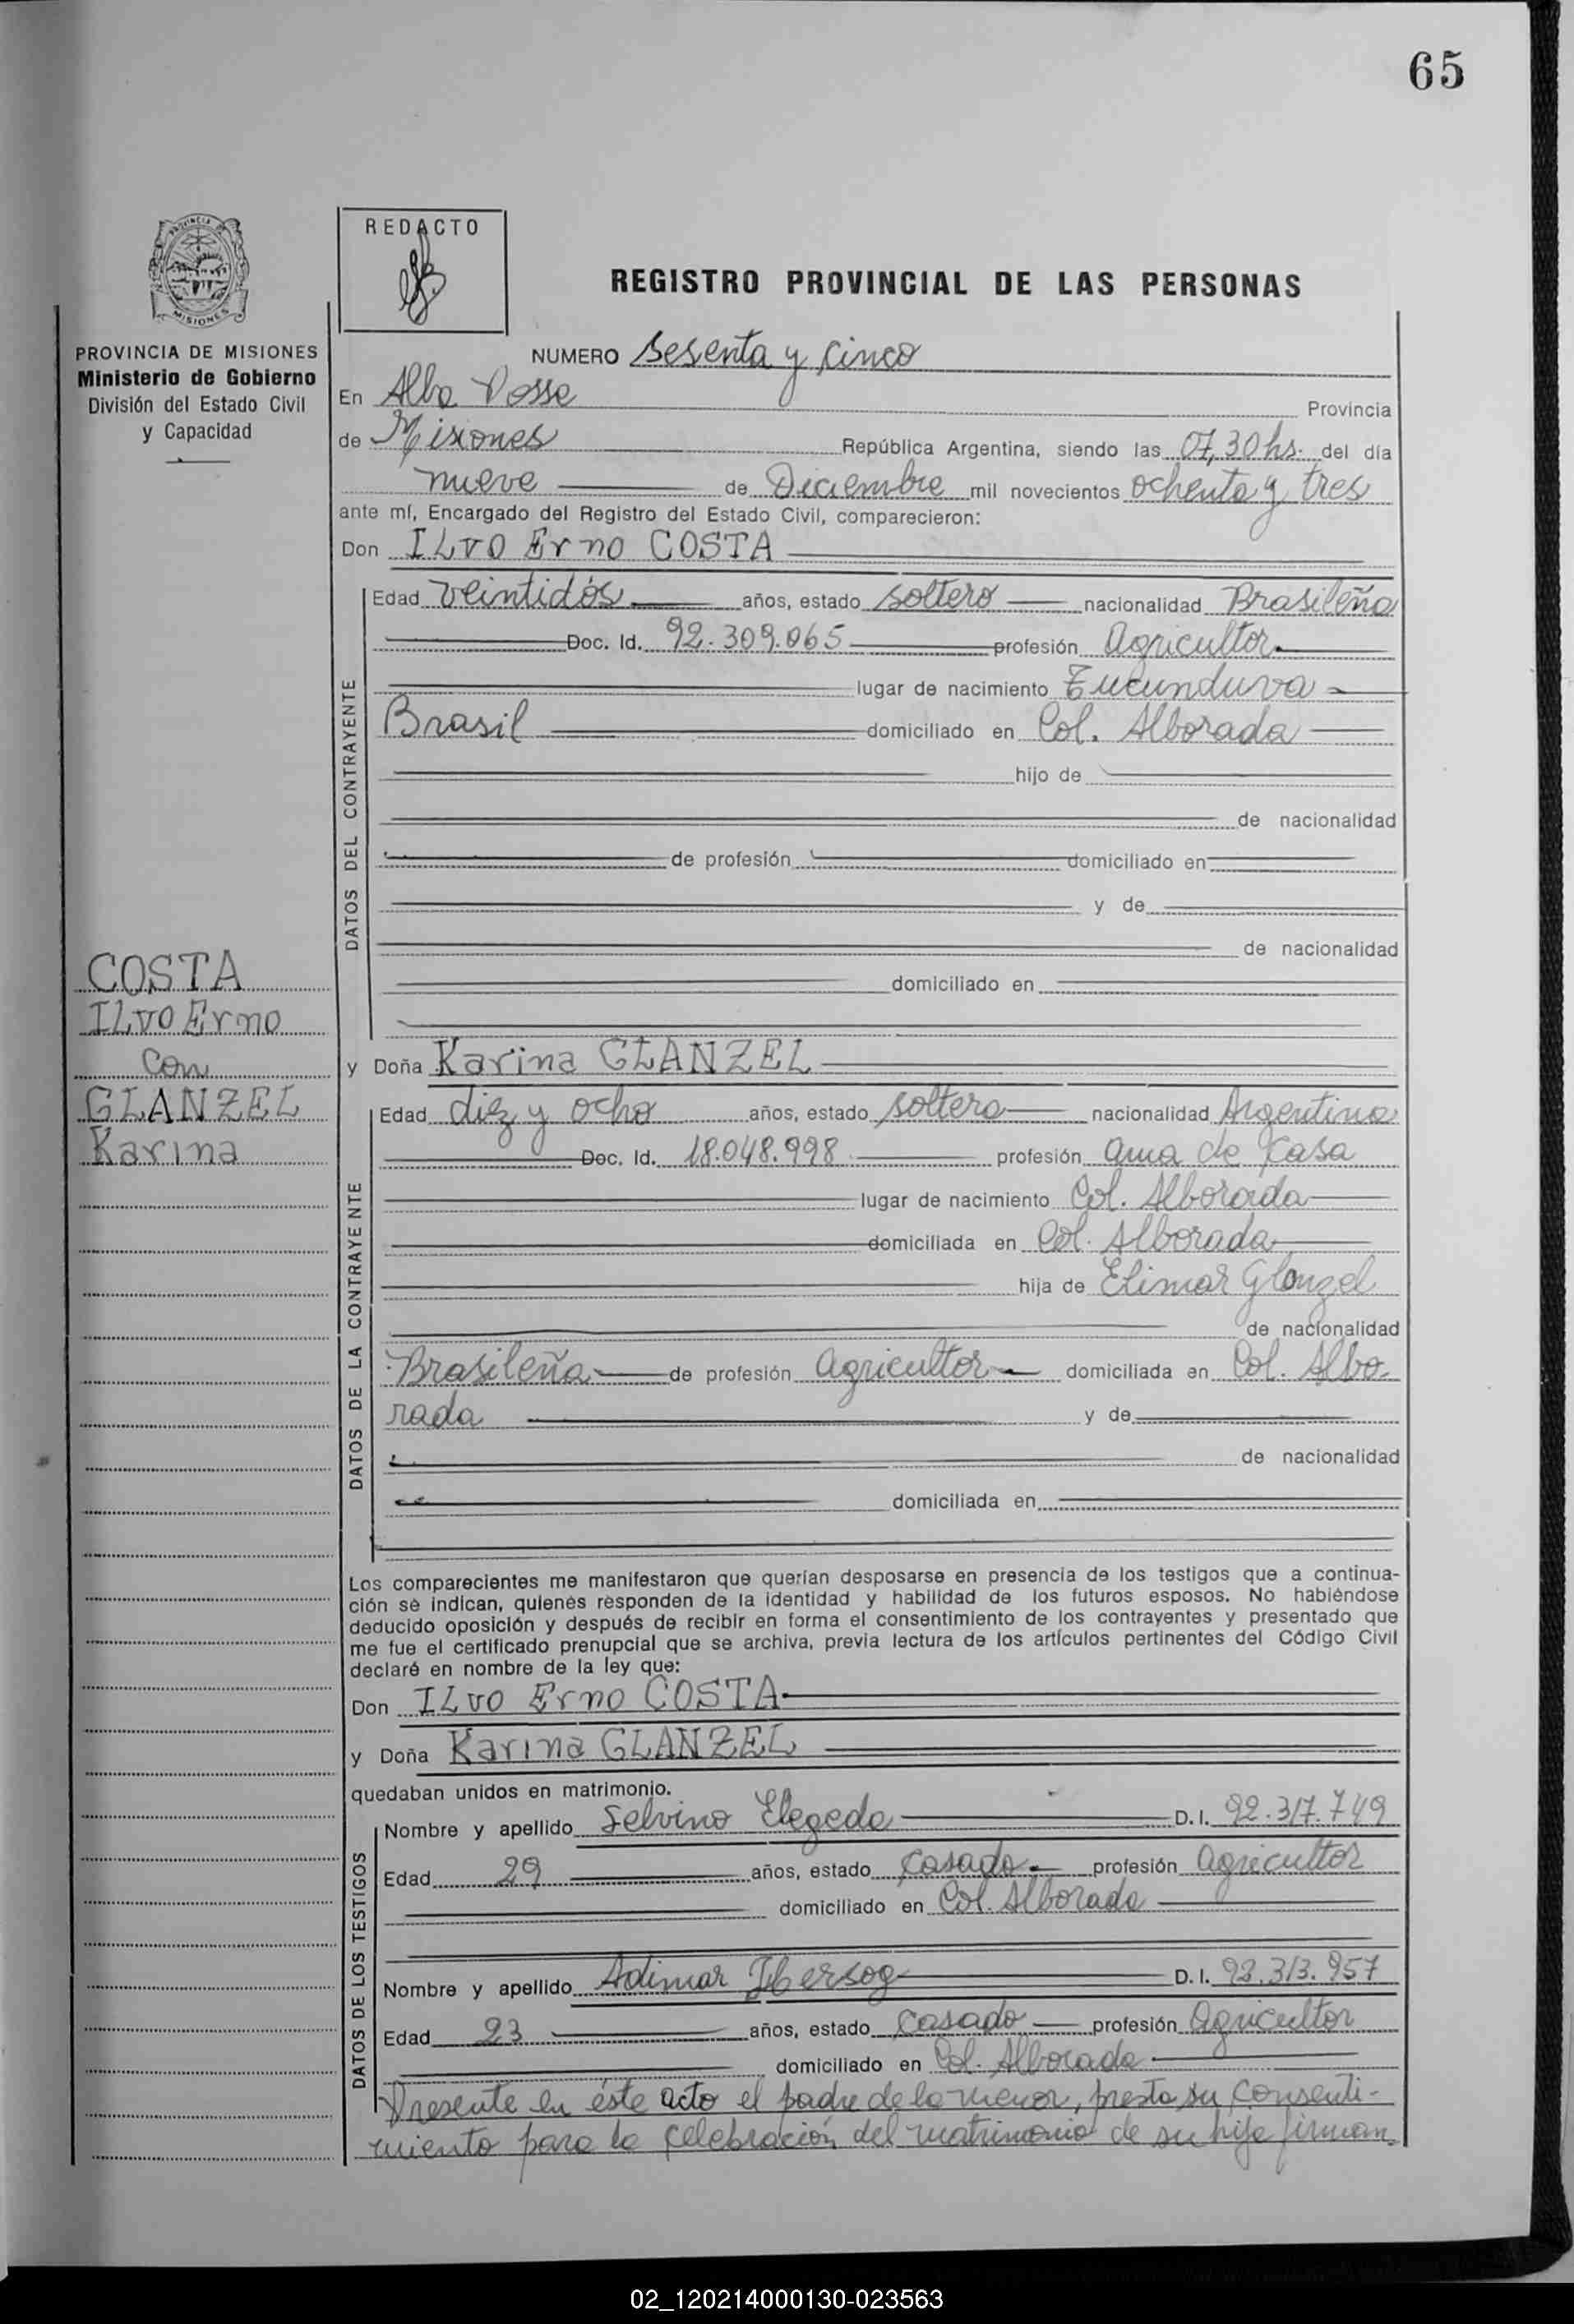 65
REDACTO
REGISTRO PROVINCIAL DE LAS PERSONAS
PROVINCIA DE MISIONES
Ministerio de Gobierno
División del Estado Civil
y Capacidad
COSTA
ILVO Erno
con
GLANZEL
Karina
NUMERO Sesenta y cinco
En Alba Posse Provincia
de Misiones República Argentina, siendo las 07,30 hs. del día
nueve de Diciembre mil novecientos ochenta y tres
ante mí, Encargado del Registro del Estado Civil, comparecieron:
Don ILVO Erno COSTA
DATOS DEL CONTRAYENTE
Edad veintidós años, estado soltero nacionalidad Brasileña
Doc. Id. 92.309.065 profesión Agricultor
lugar de nacimiento Tucunduva
Brasil domiciliado en Col. Alborada
hijo de
de nacionalidad
de profesión domiciliado en
y de
de nacionalidad
domiciliado en
y Doña Karina GLANZEL
DATOS DE LA CONTRAYENTE
Edad diez y ocho años, estado soltera nacionalidad Argentina
Doc. Id. 18.048.998 profesión ama de casa
lugar de nacimiento Col. Alborada
domiciliada en Col. Alborada
hija de Elimar Glanzel
de nacionalidad
Brasileña de profesión agricultor domiciliada en Col. Albo
rada y de
de nacionalidad
domiciliada en
Los comparecientes me manifestaron que querían desposarse en presencia de los testigos que a continua-
ción se indican, quienes responden de la identidad y habilidad de los futuros esposos. No habiéndose
deducido oposición y después de recibir en forma el consentimiento de los contrayentes y presentado que
me fue el certificado prenupcial que se archiva, previa lectura de los artículos pertinentes del Código Civil
declaré en nombre de la ley que:
Don ILVO Erno COSTA
y Doña Karina GLANZEL
quedaban unidos en matrimonio.
DATOS DE LOS TESTIGOS
Nombre y apellido Selvino D. I. 92.317.749
Edad 29 años, estado casado profesión agricultor
domiciliado en Col. Alborada
Nombre y apellido Adimar D. I. 92.313.957
Edad 23 años, estado casado profesión Agricultor
domiciliado en Col. Alborada
Presente en éste acto el padre de la menor, presta su consenti-
miento para la celebración del matrimonio de su hija firman
02_120214000130-023563